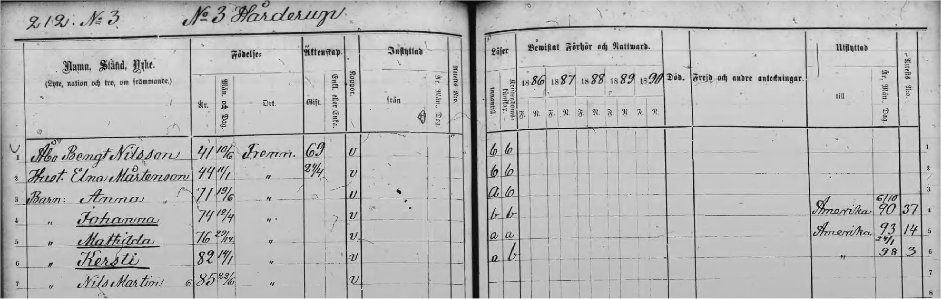 212. No 3. No 3 Hårderup
Namn, Stånd, Yrke. Födelse: Äktenskap. Koppor. Inflyttad Läser Bewistat Förhör och Nattward. Död. Frejd och andre anteckningar. Utflyttad
(Lyte, nation och tro, om främmande.) År. Mån. och Dag. Ort. Gift. Enkl. eller Enka. från År. Mån. Dag. 1886 1887 1888 1889 1890 till År. Mån. Dag.
F. N. F. N. F. N. F. N. F. N.
1 Åbo Bengt Nilsson 41 10/6 Fremm. 69 v b b
2 Hust. Elna Mårtenson 44 11/1 „ 24/4 v b b
3 Barn: Anna 71 19/6 „ v a b
4 „ Johanna 74 12/4 „ v b b Amerika 6/10 90 37 4
5 „ Mathilda 76 „ v a a Amerika 93 14 5
6 „ Kersti 82 19/1 „ v a b „ 24/1 98 3 6
7 „ Nils Martin 6 85 22/6 „ v 7
8